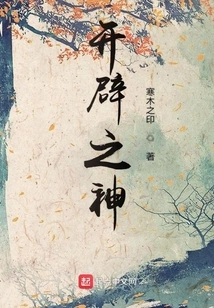 开辟之神
寒木之印
著
起
中文网